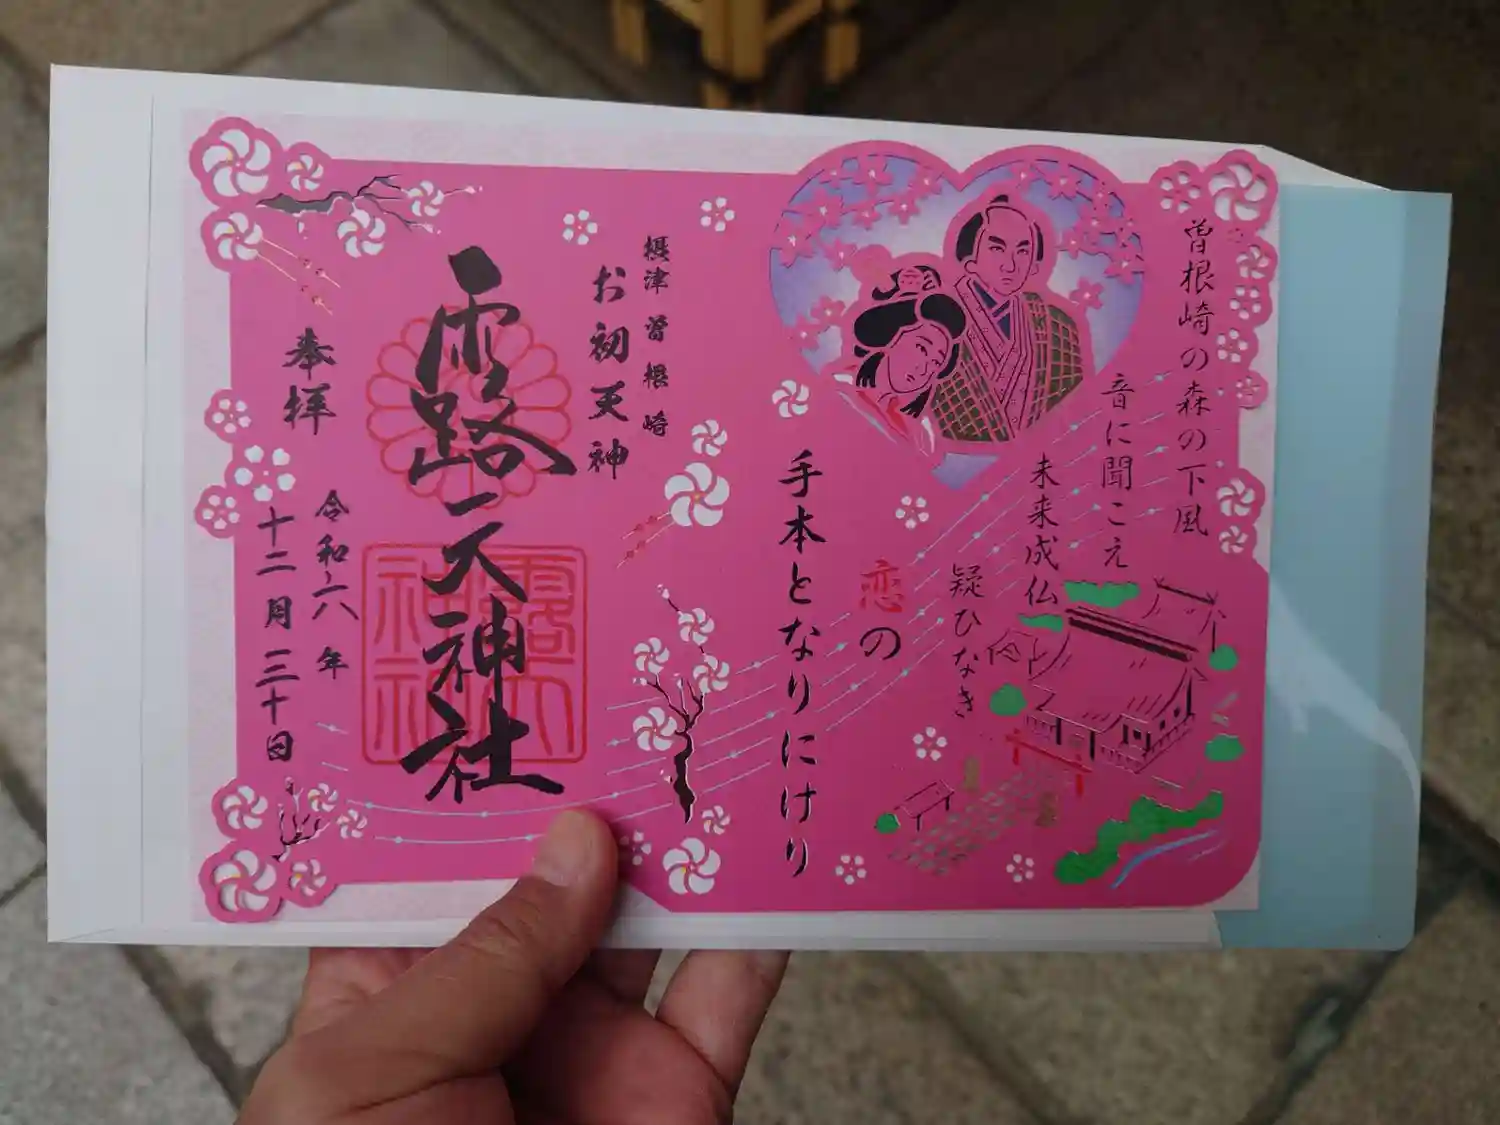 曽根崎の森の下風
音に聞こえ
未来成仏
疑ひなき
恋の
手本となりにけり
摂津 曽根崎
お初天神
露天神社
奉拝
令和六年
十二月三十日
露天神社